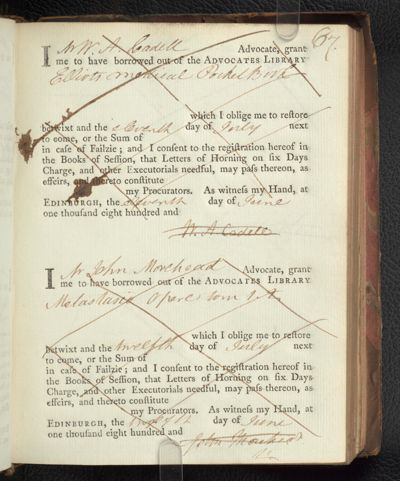 67.
I Mr W. A. Cadell Advocate, grant
me to have borrowed out of the ADVOCATES LIBRARY
Elliots medical Pocket Book
which I oblige me to reſtore
betwixt and the eleventh day of July next
to come, or the Sum of
in caſe of Failzie; and I conſent to the regiſtration hereof in
the Books of Seſſion, that Letters of Horning on ſix Days
Charge, and other Executorials needful, may paſs thereon, as
effeirs, and thereto conſtitute
my Procurators. As witneſs my Hand, at
EDINBURGH, the eleventh day of June
one thouſand eight hundred and
W. A. Cadell
I Mr John Morehead Advocate, grant
me to have borrowed out of the ADVOCATES LIBRARY
Metastasio Opere tom
which I oblige me to reſtore
betwixt and the twelfth day of July next
to come, or the Sum of
in caſe of Failzie; and I conſent to the regiſtration hereof in
the Books of Seſſion, that Letters of Horning on ſix Days
Charge, and other Executorials needful, may paſs thereon, as
effeirs, and thereto conſtitute
my Procurators. As witneſs my Hand, at
EDINBURGH, the twelfth day of June
one thouſand eight hundred and
John Morehead